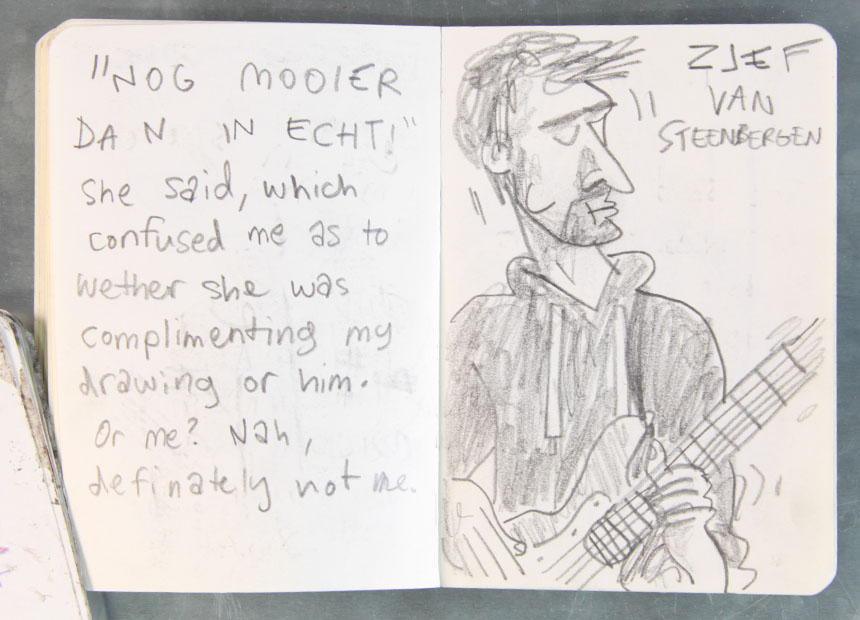 "NOG MOOIER
DAN IN ECHT!"
she said, which
confused me as to
wether she was
complimenting my
drawing or him.
Or me? Nah,
definately not me.
ZJEF
VAN
STEENBERGEN